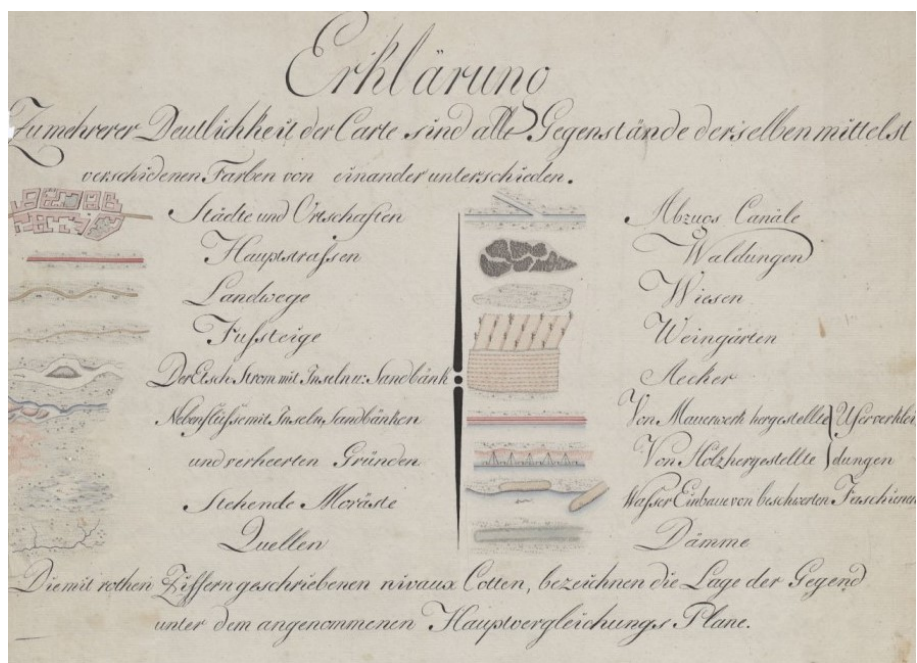 Erklärung
Zu mehrerer Deutlichkeit der Carte sind alle Gegenstände derselben mittelst
verschidenen Farben von einander unterschieden.
Städte und Ortschaften
Hauptstraſsen
Landwege
Fuſsteige
Der Etsch Strom mit Inseln u: Sandbänk
Nebenflüſse mit Inseln, Sandbänken
und verheerten Gründen
Stehende Moräste
Quellen
Abzugs Canäle
Waldungen
Wiesen
Weingärten
Aecker
Von Mauerwerk hergestellte Uferverklei
Von Holz hergestellte dungen
Waſser Einbaue von beschwerten Faschinen
Dämme
Die mit rothen Ziffern geschriebenen nivaux Cotten, bezeichnen die Lage der Gegend
unter dem angenommenen Hauptvergleichungs Plane.